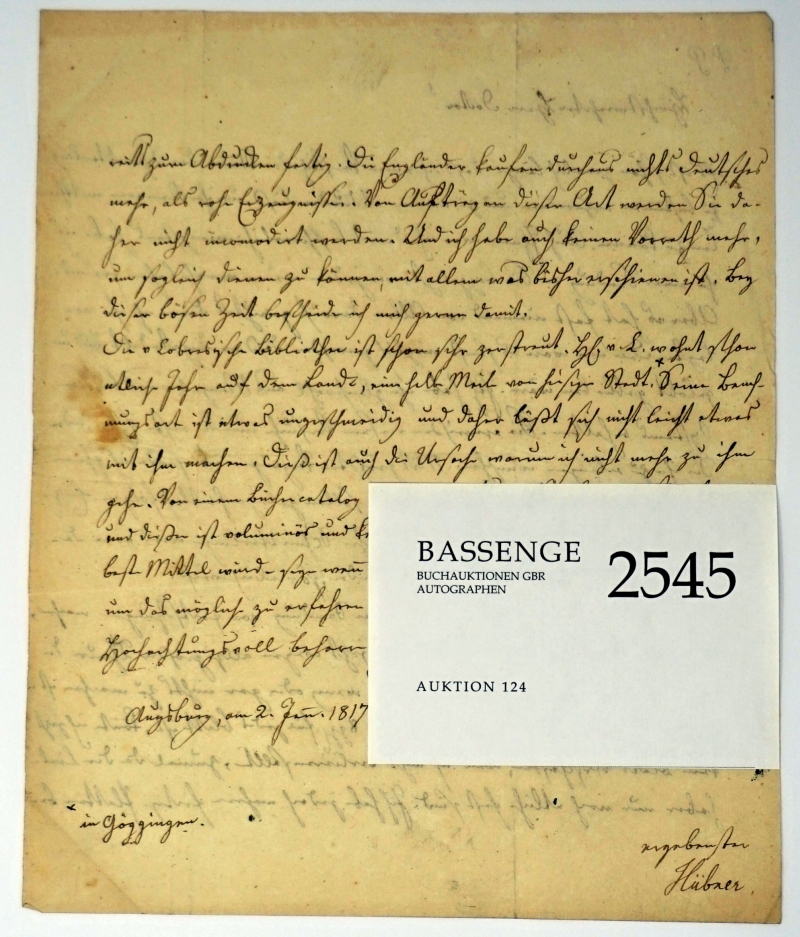 reits zum Abdrucken fertig. Die Engländer kaufen durchaus nichts deutsches
mehr, als rohe Erzeugnisse. Von Aufträgen dieser Art werden Sie da-
her nicht incomodirt werden. Und ich habe auch keinen Vorrath mehr,
um sogleich dienen zu können, mit allem was bisher erschienen ist. Bey
dieser bösen Zeit bescheide ich mich gerne damit.
Die v Cobresische Bibliothek ist schon sehr zerstreut. H. v. C. wohnt schon
etliche Jahr auf dem Lande, eine halbe Meile von hiesiger Stadt. Seine Beneh-
mungsart ist etwas ungeschmeidig und daher läßt sich nicht leicht etwas
mit ihm machen. Dieß ist auch die Ursache warum ich nicht mehr zu ihm
gehe. Von einem Büchercatalog
und dieser ist voluminös und
beste Mittel würde seyn wenn
um das mögliche zu erfahren
Hochachtungsvoll
Augsburg, am 2. Jan. 1817
in Göggingen.
ergebenster
Hübner.
BASSENGE
BUCHAUKTIONEN GBR
AUTOGRAPHEN
2545
AUKTION 124